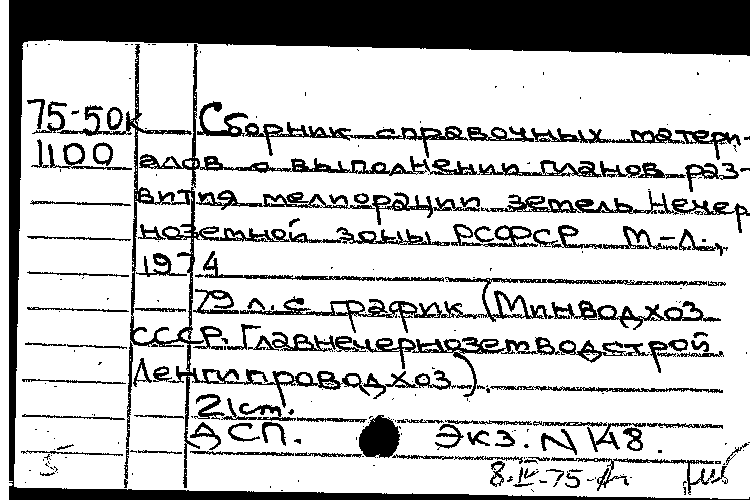 75-50к Сборник справочных матери-
1100 алов о выполнении планов раз-
вития мелиорации земель Нечер
ноземной зоны РСФСР М.-Л.,
1974
79 л. с график (Минводхоз
СССР. Главнечерноземводстрой.
Ленгипроводхоз).
21 cm.
ДСП. Экз. N 148.
5 8.IV-75